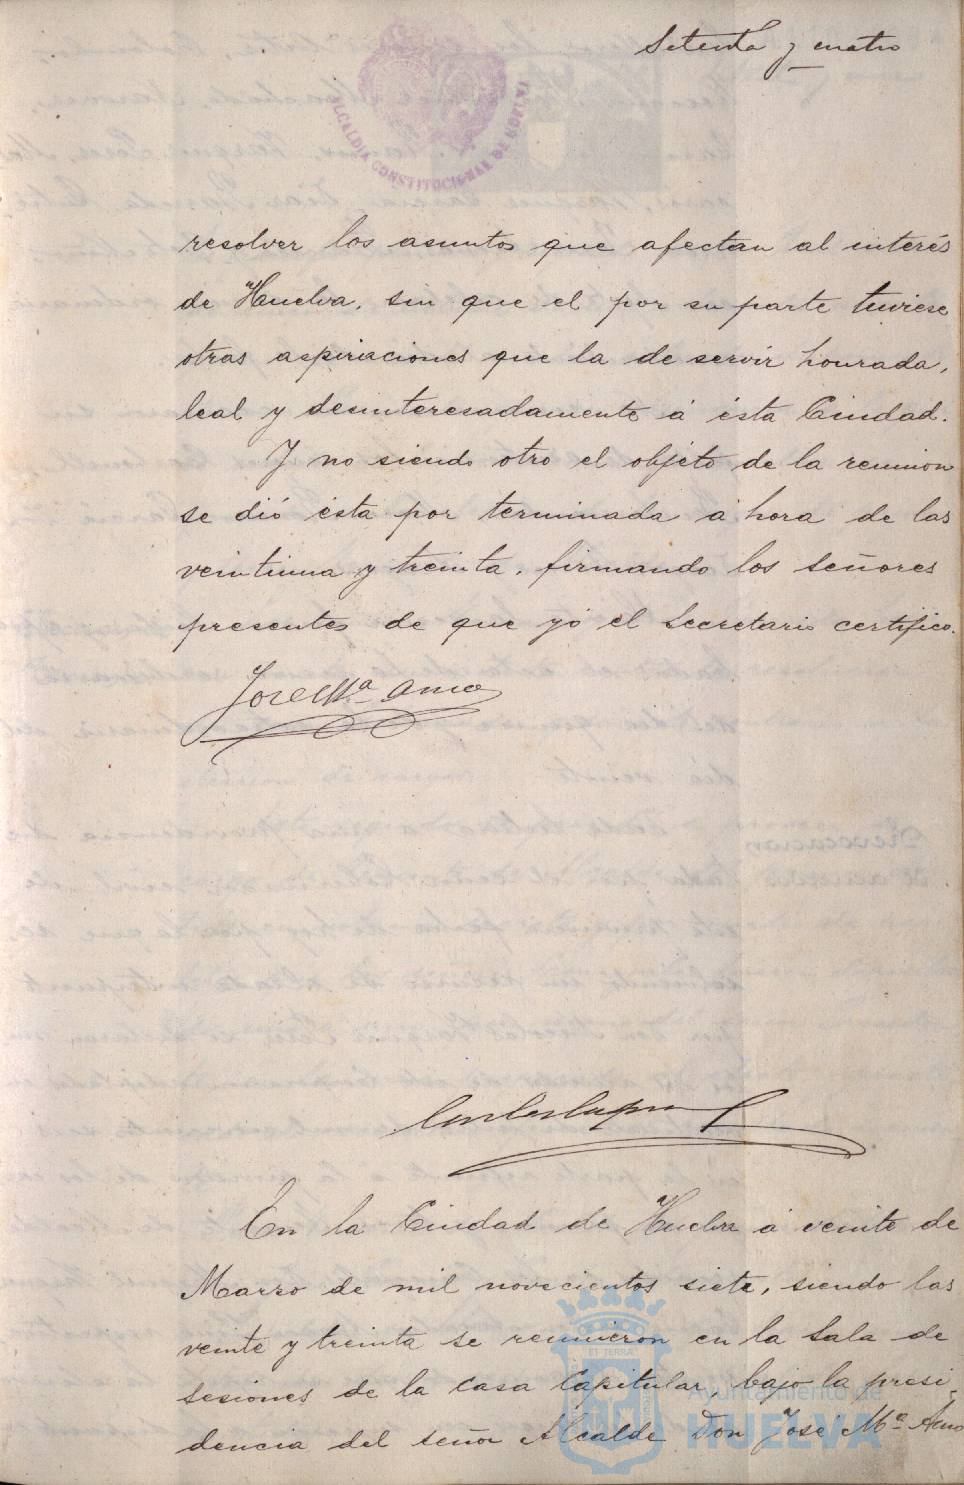 Setenta y cuatro
ALCALDIA CONSTITUCIONAL DE HUELVA
resolver los asuntos que afectan al interés
de Huelva, sin que el por su parte tuviese
otras aspiriaciones que la de servir honrada,
leal y desinteresadamente á ésta Ciudad.
Y no siendo otro el objeto de la reunion
se dió ésta por terminada a hora de las
veintiuna y treinta, firmando los señores
presentes de que yó el Secretario certifico.
Jose Mª Amo
En la Ciudad de Huelva á veinte de
Marzo de mil novecientos siete, siendo las
veinte y treinta se reunieron en la Sala de
sesiones de la Casa Capitular bajo la presi-
dencia del señor Alcalde Don Jose Mª Amo
Ayuntamiento de
HUELVA